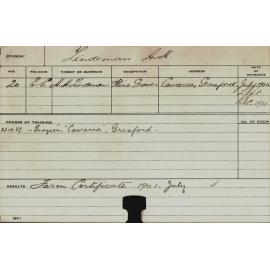 STUDENT Lindeman A.H.
AGE RELIGION PARENT OR GUARDIAN OCCUPATION ADDRESS DATE OF ENTRANCE
20 C.E. A.H. Lindeman Wine Grower Cawarra, Gresford July 1904
COURSE OF TRAINING No. OF ROOM
21.10.27 - Grazier, "Cawarra", Gresford.
RESULTS Farm Certificate 1905 July